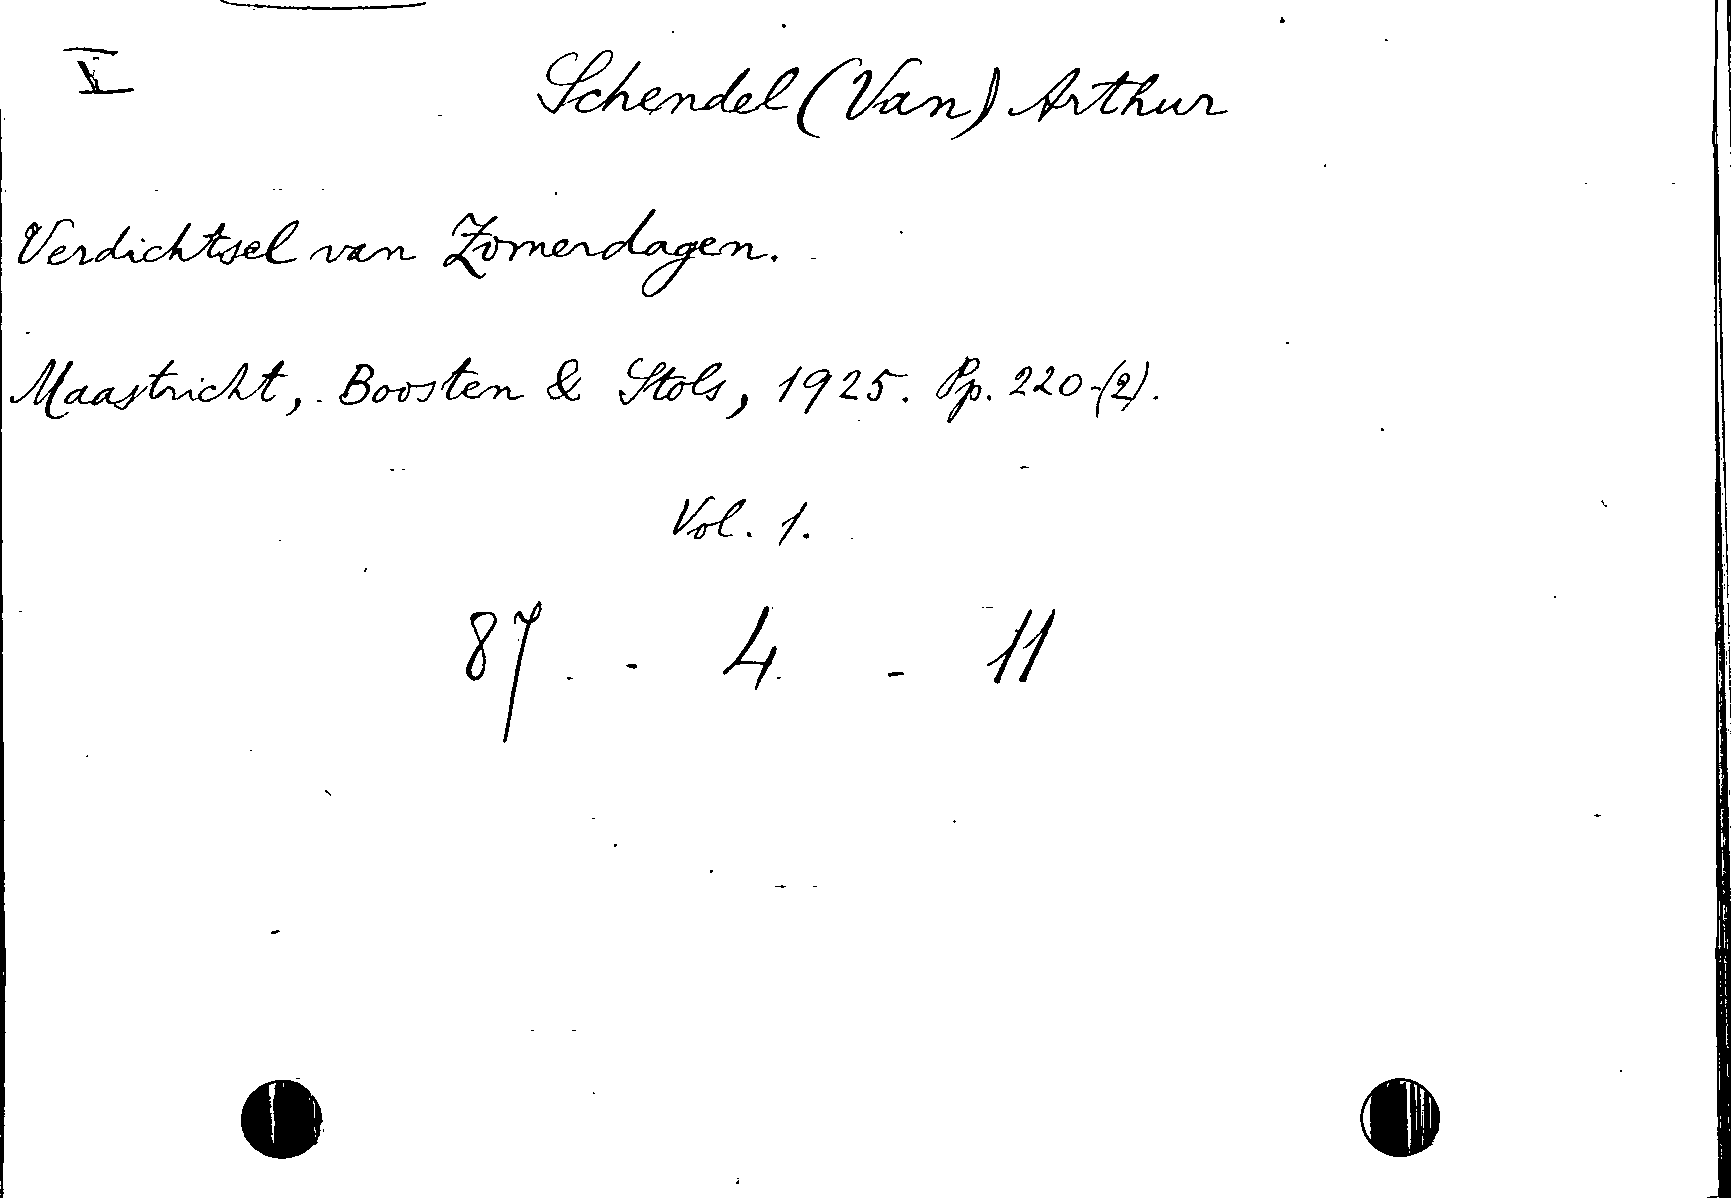 V
Schendel (Van) Arthur
Verdichtsel van Zomerdagen.
Maastricht, Boosten & Stols, 1925. Pp. 220-(2).
Vol. 1.
87 - 4 - 11